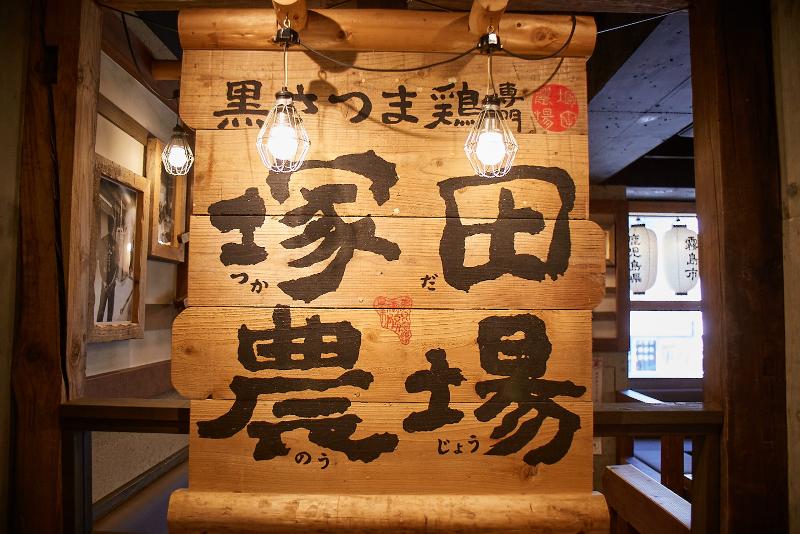 黒さつま鶏専門
塚田
つかだ
農場
のうじょう
鹿児島県
霧島市